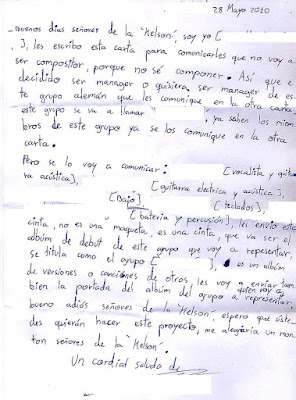 28 Mayo 2010
-Buenos días señores de la 'Kelson', soy yo [
], les escribo esta carta para comunicarles que no voy a
ser compositor, porque no sé componer. Así que e
decidido ser manager o quisiera ser manager de es-
te grupo alemán que les comunique en la otra carta.
este grupo se va a llamar , ya saben los miem
bros de este grupo ya se los comunique en la otra
carta.
Pero se lo voy a comunicar: [vocalista y guita
rra acústica], [guitarra electrica y acústica],
[Bajo], [teclados],
[bateria y percusión], les envío esta
cinta, no es una maqueta, es una cinta, que va ser el
albúm de debut de este grupo que voy a repesentar,
se titula como el grupo [ ], es un albúm
de versiones o canciones de otros, les voy a enviar tam
bien la portada del albúm del grupo a representar,
quien voy a
bueno adiós señores de la 'Kelson', espero que uste-
des quierán hacer este proyecto, me alegraria un mon
ton señores de la 'Kelson'.
Un cordial saludo de